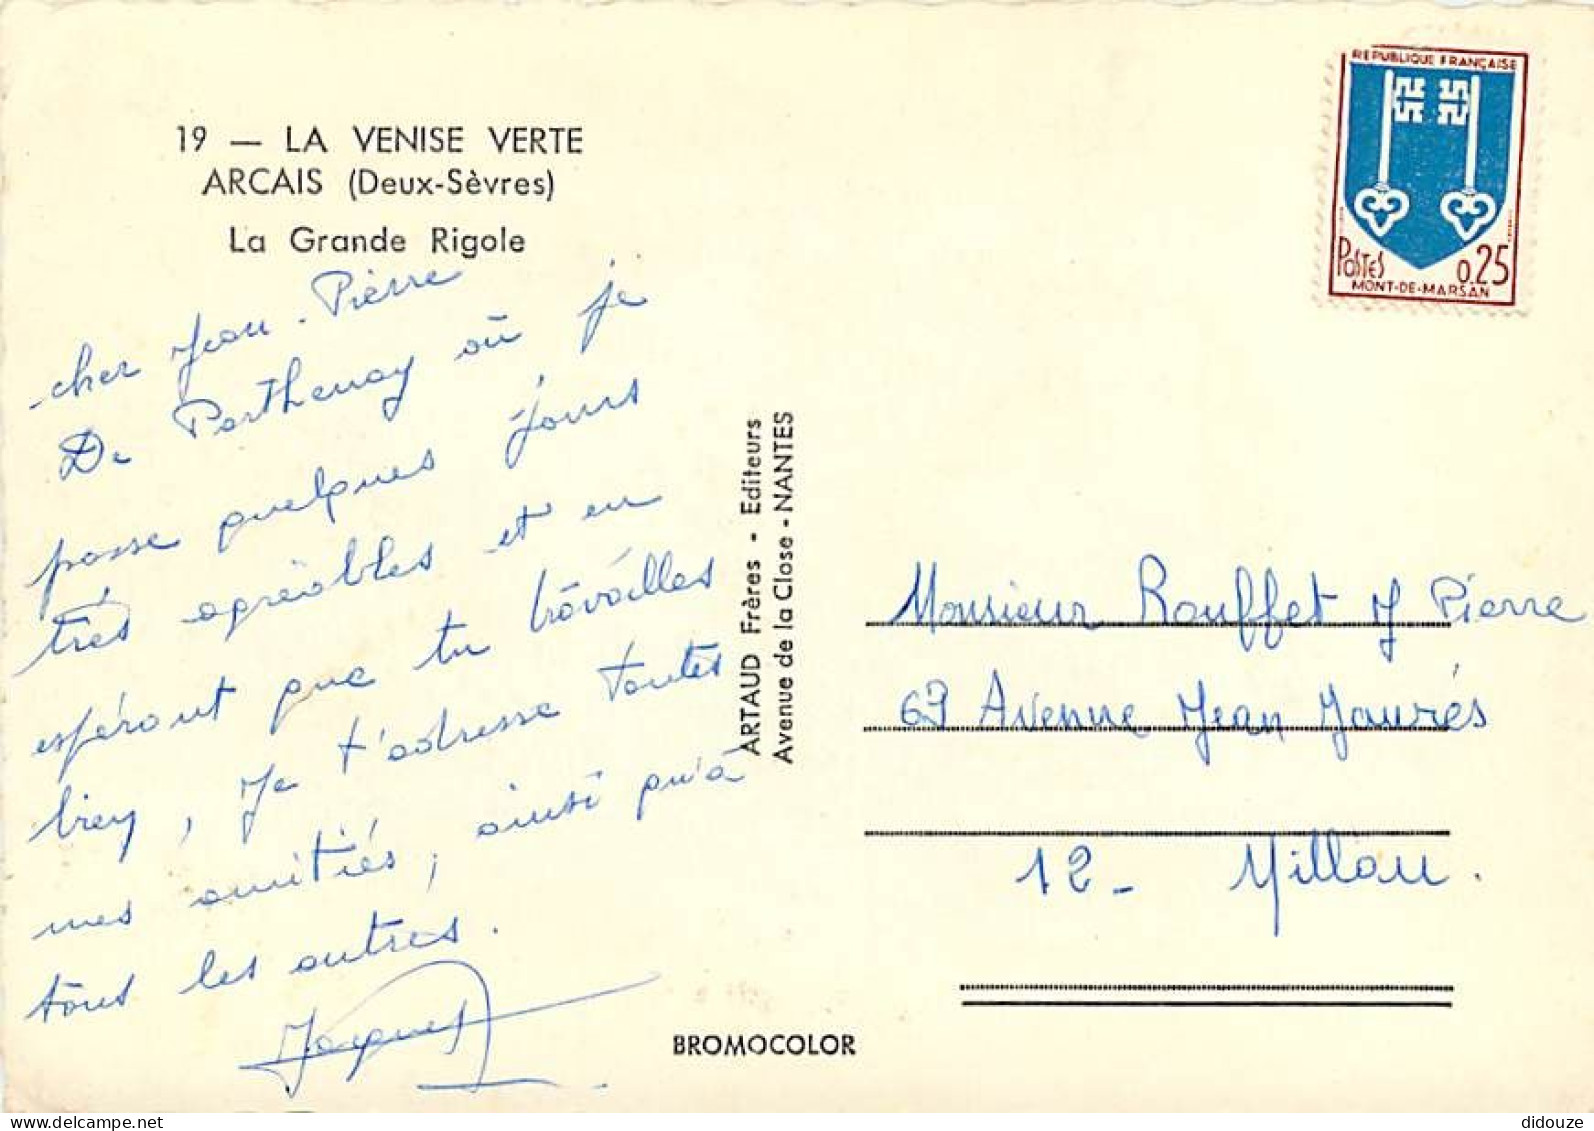 19 — LA VENISE VERTE
ARCAIS (Deux-Sèvres)
La Grande Rigole
cher Jean-Pierre
De Parthenay où je
passe quelques jours
très agréables et en
espérant que tu travailles
bien, Je t'adresse toutes
mes amitiés, ainsi qu'à
tous les autres.
Jacques
ARTAUD Frères - Editeurs
Avenue de la Close - NANTES
BROMOCOLOR
REPUBLIQUE FRANÇAISE
POSTES 0.25
MONT-DE-MARSAN
Monsieur Rouffet J Pierre
69 Avenue Jean Jaurés
12 - Millau.
didouze